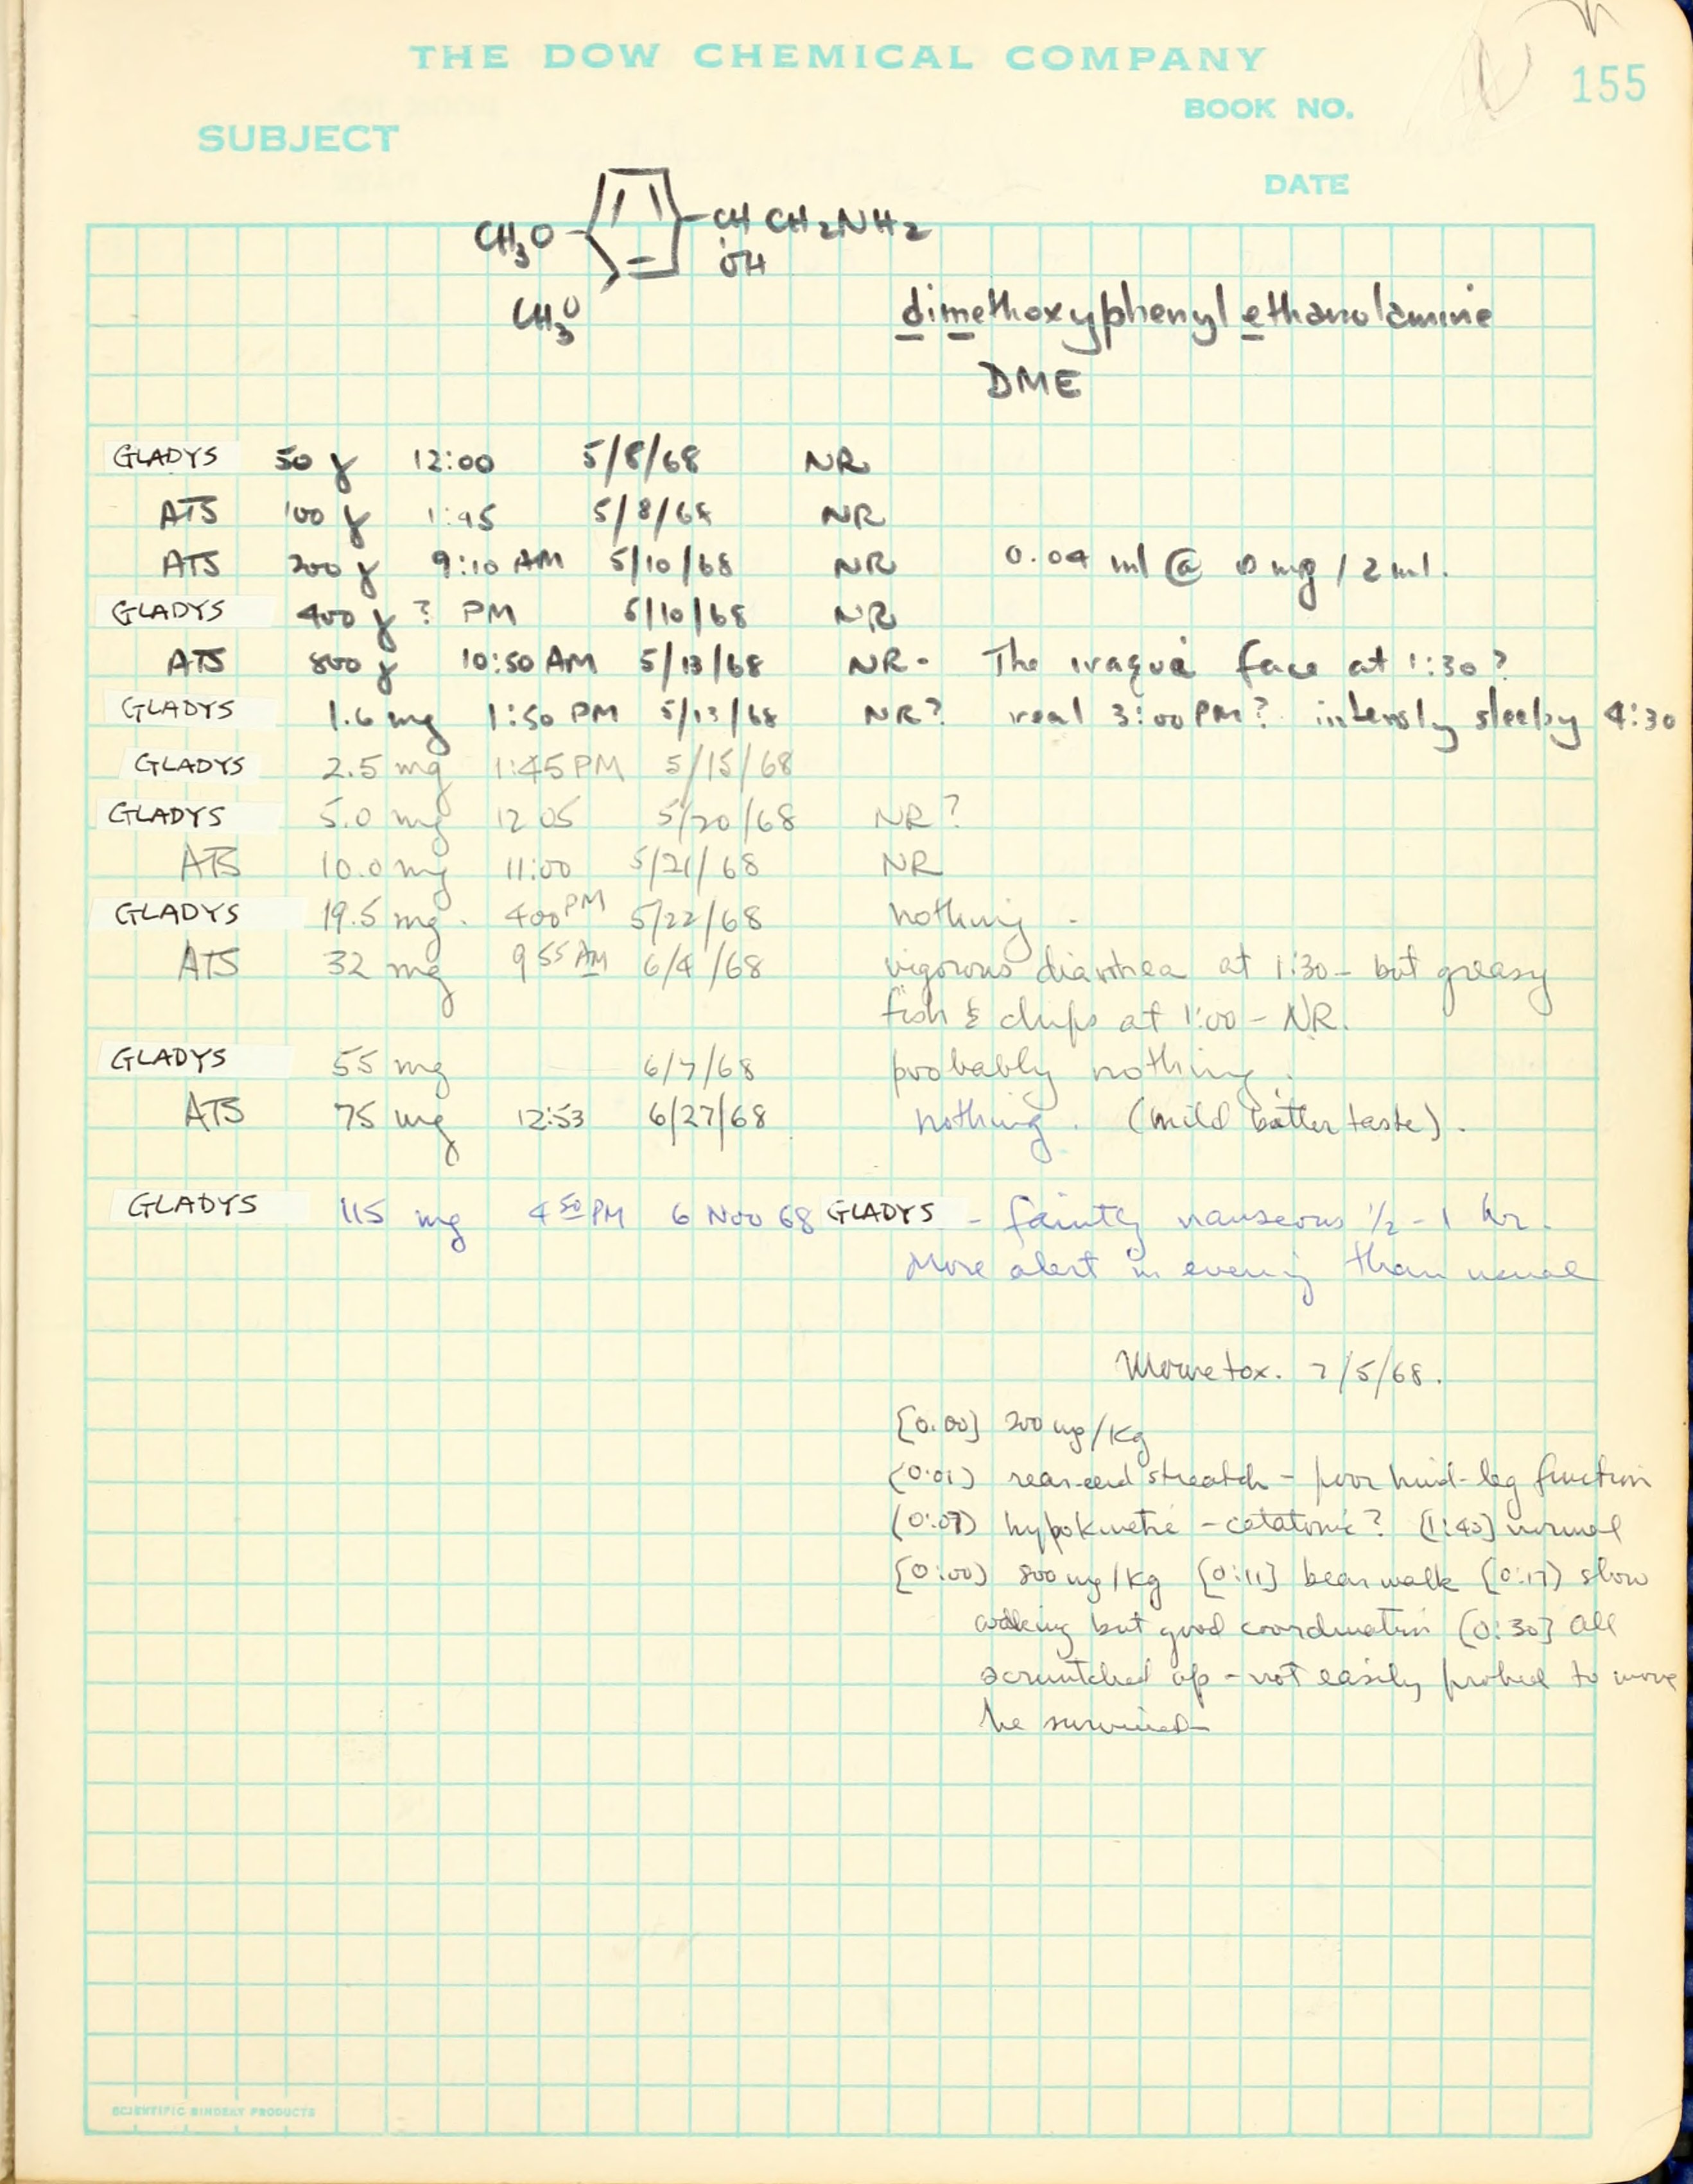 THE DOW CHEMICAL COMPANY
155
BOOK NO.
SUBJECT
DATE
CH3O CH CH2NH2
OH
CH3O
dimethoxyphenyl ethanolamine
DME
GLADYS 50 γ 12:00 5/8/68 NR
ATS 100 γ 1:45 5/8/68 NR
ATS 200 γ 9:10 AM 5/10/68 NR 0.04 ml @ 10 mg / 2 ml.
GLADYS 400 γ ? PM 5/10/68 NR
ATS 800 γ 10:50 AM 5/13/68 NR - The face at 1:30?
GLADYS 1.6 mg 1:50 PM 5/13/68 NR? real 3:00 PM? intensly sleepy 4:30
GLADYS 2.5 mg 1:45 PM 5/15/68
GLADYS 5.0 mg 12 05 5/20/68 NR?
ATS 10.0 mg 11:00 5/21/68 NR
GLADYS 19.5 mg. 400 PM 5/22/68 nothing -
ATS 32 mg 9 55 AM 6/4/68 vigorous diarrhea at 1:30 - but greasy
fish & chips at 1:00 - NR.
GLADYS 55 mg 6/7/68 probably nothing.
ATS 75 mg 12:53 6/27/68 nothing. (mild bitter taste).
GLADYS 115 mg 4 50 PM 6 Nov 68 GLADYS - faintly nauseous 1/2 - 1 hr.
More alert in evening than usual
Mouse tox. 7/5/68.
[0:00] 200 mg/Kg
(0:01) rear-end stretch - poor hind-leg function
(0:07) hypokinetic - catatonic? [1:40] normal
[0:00) 800 mg/Kg [0:11] bear walk (0:17) slow
walking but good coordination (0:30] all
scruntched up - not easily probed to move
he survived -
SCIENTIFIC BINDERY PRODUCTS